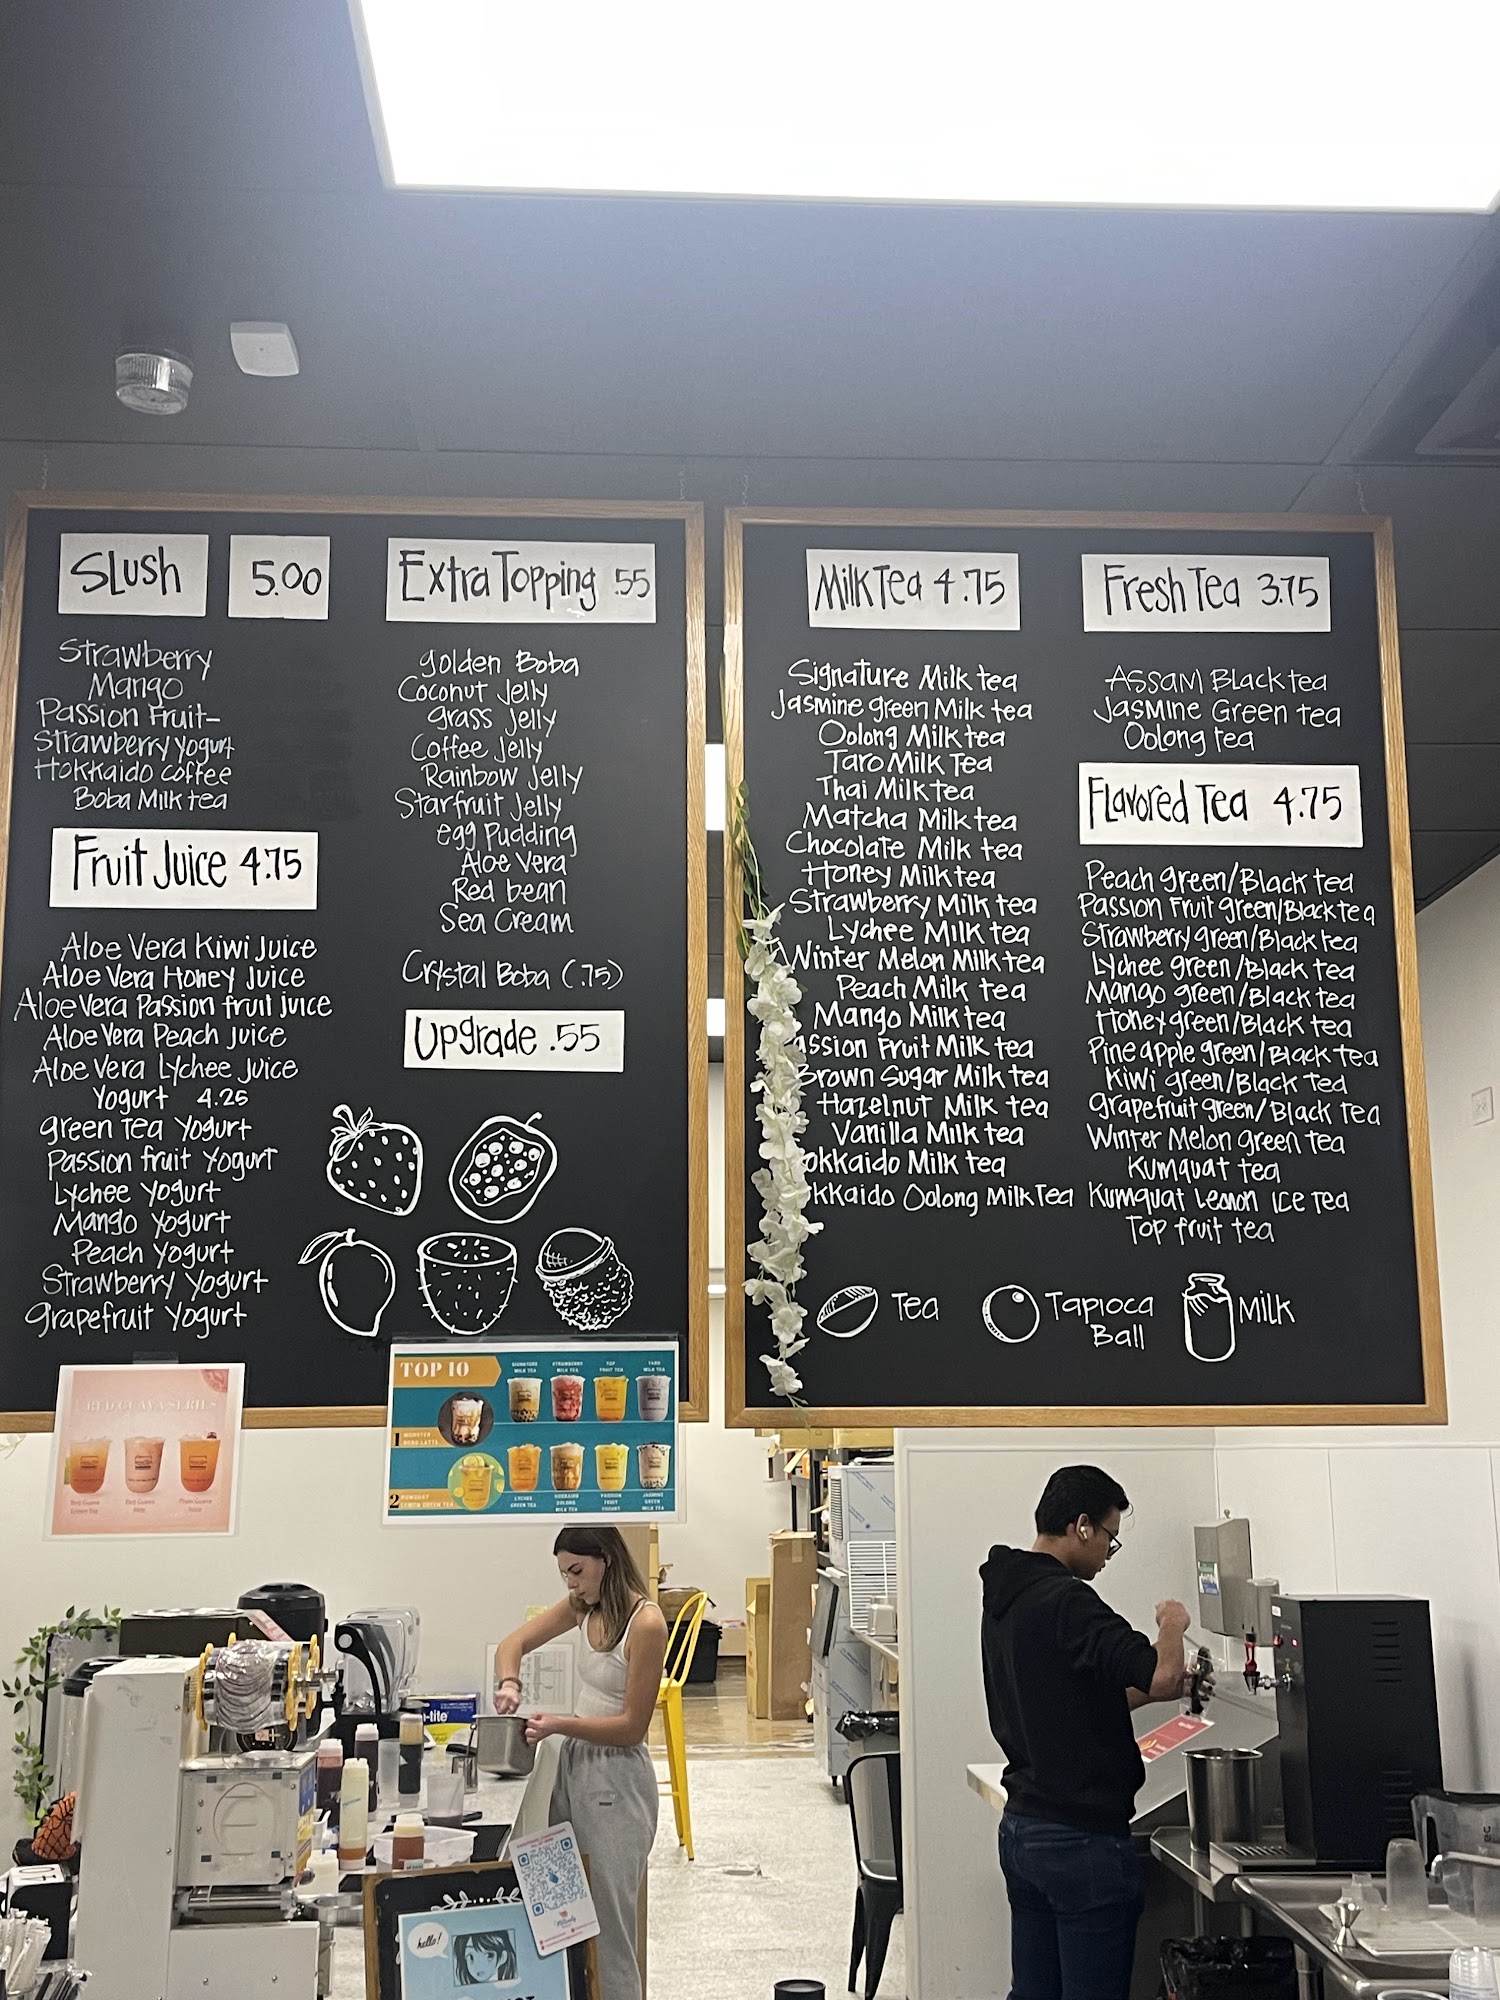 Slush 5.00
Strawberry
Mango
Passion Fruit-
Strawberry yogurt
Hokkaido coffee
Boba Milk tea
Fruit Juice 4.75
Aloe Vera Kiwi Juice
Aloe Vera Honey Juice
Aloe Vera Passion fruit juice
Aloe Vera Peach Juice
Aloe Vera Lychee Juice
Yogurt 4.25
green tea Yogurt
Passion fruit Yogurt
Lychee Yogurt
Mango Yogurt
Peach Yogurt
Strawberry Yogurt
grapefruit Yogurt
Extra Topping .55
golden Boba
Coconut Jelly
grass Jelly
Coffee Jelly
Rainbow Jelly
Starfruit Jelly
egg pudding
Aloe Vera
Red bean
Sea Cream
Crystal Boba (.75)
Upgrade .55
Milk Tea 4.75
Signature Milk tea
Jasmine green Milk tea
Oolong Milk tea
Taro Milk Tea
Thai Milk tea
Matcha Milk tea
Chocolate Milk tea
Honey Milk tea
Strawberry Milk tea
Lychee Milk tea
Winter Melon Milk tea
Peach Milk tea
Mango Milk tea
assion Fruit Milk tea
Brown Sugar Milk tea
Hazelnut Milk tea
Vanilla Milk tea
okkaido Milk tea
kkaido Oolong Milk Tea
Fresh Tea 3.75
Assam Black tea
Jasmine Green tea
Oolong tea
Flavored Tea 4.75
Peach green/Black tea
Passion Fruit green/Black tea
Strawberry green/Black tea
Lychee green/Black tea
Mango green/Black tea
Honey green/Black tea
Pineapple green/Black tea
Kiwi green/Black tea
grapefruit green/Black tea
Winter Melon green tea
Kumquat tea
Kumquat Lemon ICE Tea
Top fruit tea
Tea
Tapioca
Ball
Milk
RED GUAVA SERIES
Red Guava
Green Tea
Red Guava
TOP 10
SIGNATURE
MILK TEA
STRAWBERRY
MILK TEA
TOP
FRUIT TEA
TARO
MILK TEA
1 MONSTER
BOBA LATTE
2
LYCHEE
GREEN TEA
HOKKAIDO
OOLONG
MILK TEA
PASSION
FRUIT
YOGURT
JASMINE
GREEN
MILK TEA
-tite
hello!